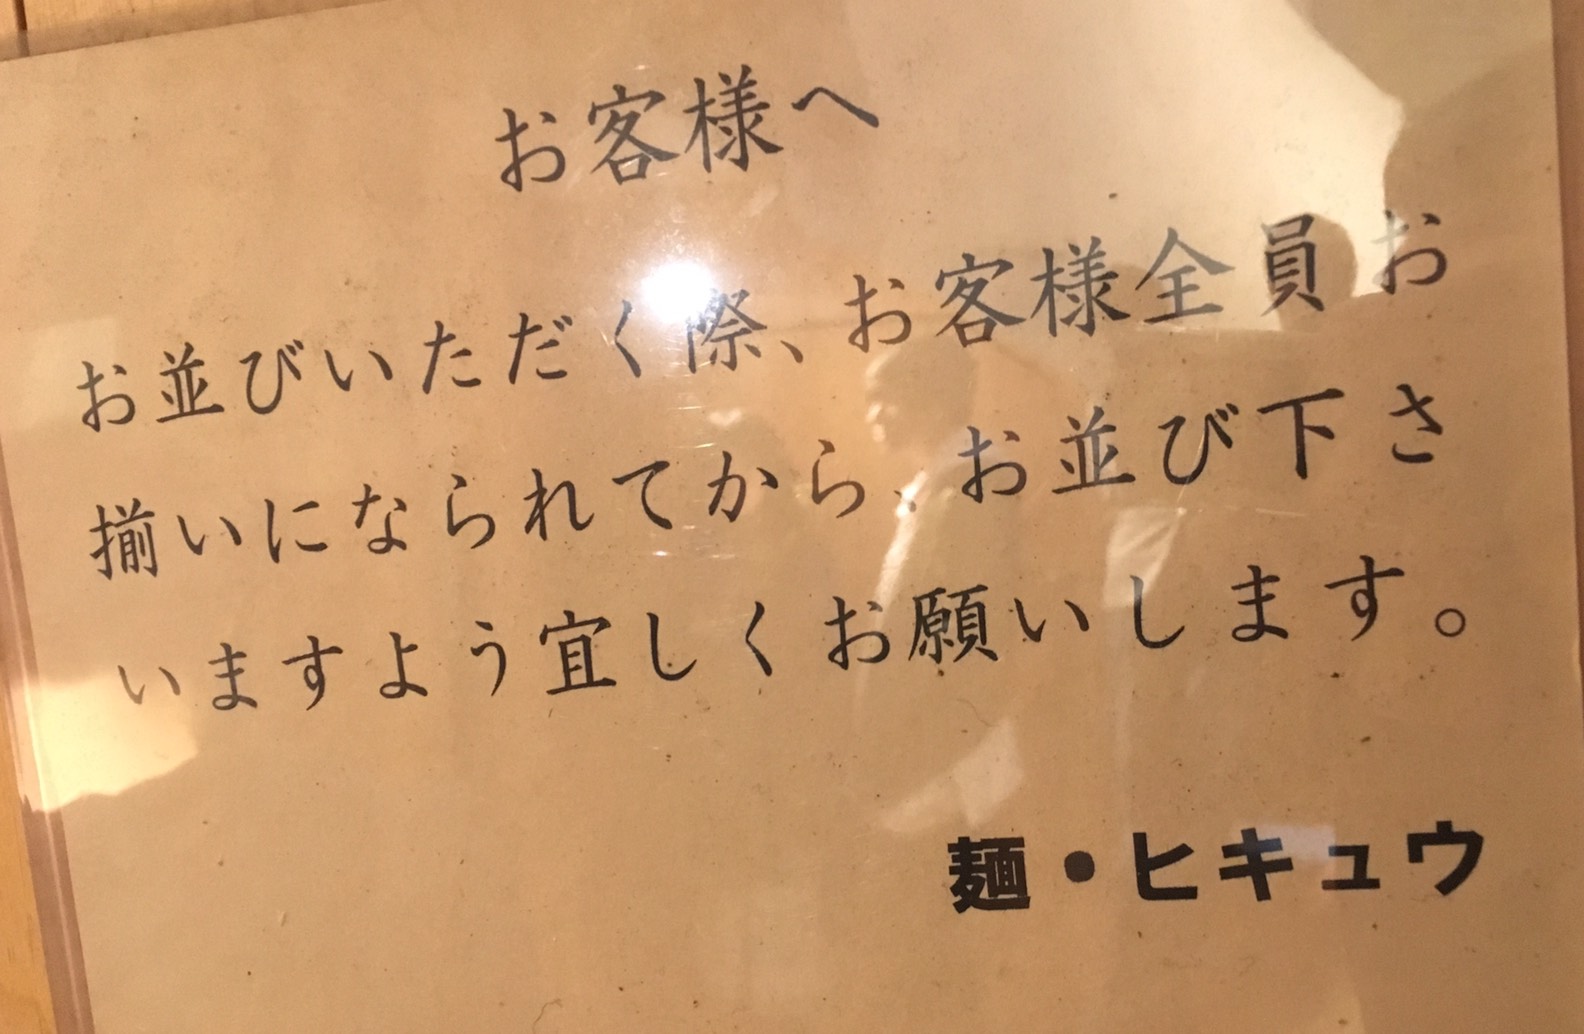 お客様へ
お並びいただく際、お客様全員お
揃いになられてから、お並び下さ
いますよう宜しくお願いします。
麺・ヒキュウ